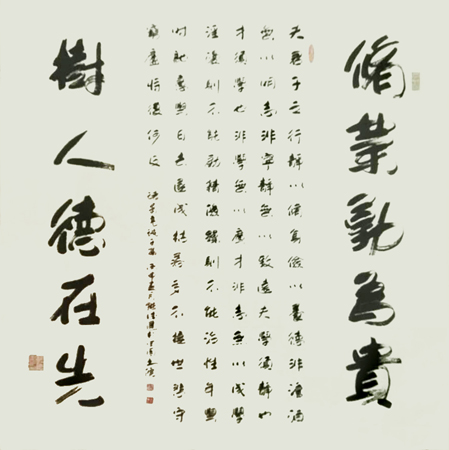 脩業勤為貴
夫君子之行靜以脩身儉以養德非澹泊
無以明志非寧靜無以致遠夫學須靜也
才須學也非學無以廣才非志無以成學
淫漫則不能勵精險躁則不能治性年與
時馳意與日去遂成枯落多不接世悲守
窮廬將復何及
樹人德在先